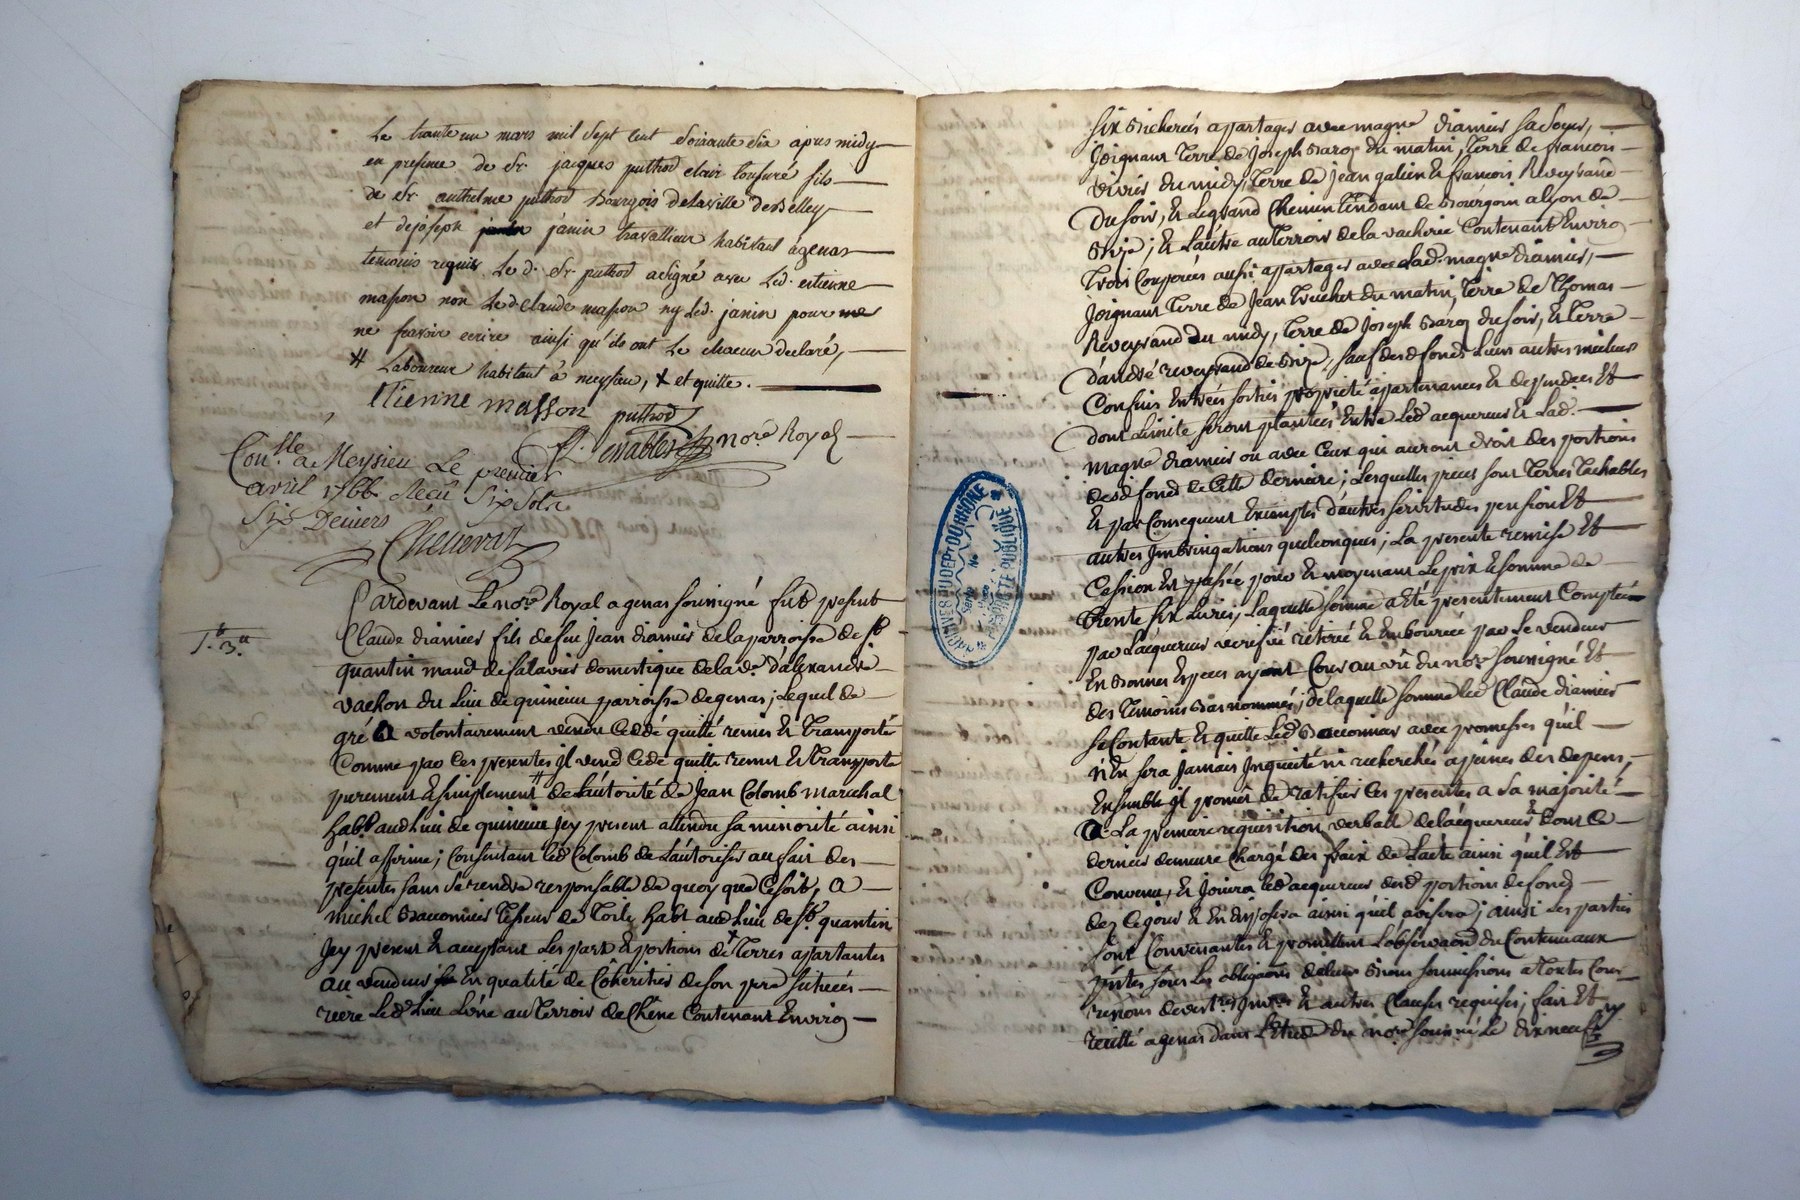 Le trante un mars mil sept cent soixante six apres midy
en presence de Sr. jacques puthod clair tonsuré fils
de Sr. anthelme puthod Bourgois de la ville de Belley
et de joseph janin travallieur habitant a genas
temoins requis Le d. Sr. puthod a signé avec Led. estienne
masson non Le d. Claude masson ny Led. janin pour
ne scavoir ecrire ainsi qu'ils ont Le chacun declaré,
# Laboureur habitant à meysieu, X et quitte.
Etienne masson puthod
nore. Royal
Conlle. a Meysieu Le premier
avril 1766 Reçu Six Sols
Six Deniers
Chenevaz
Pardevant Le nore. Royal a genas soussigné fut present
Claude diamier fils de feu jean diamier de la parroisse de St.
quantin mandt. de falavier domestique de la ve. d'alexandre
vachon du lieu de quinieu parroisse de genas; Lequel de
gré a volontairement vendu Ceddé quitté remis & transporté
Comme par Ces presentes jl vend Cede quitte remet & transporte
purement & simplement # de l'autorité de Jean Colomb marechal
habt. aud. lieu de quinieu jcy present attendu sa minorité ainsi
qu'il affirme; Consentant led. Colomb de l'autoriser au fait des
presentes sans se rendre responsable de quoy que Ce soit, a
michel Baconnier tisseur de toile habt. aud. lieu de St. quantin
jcy present & acceptant Les part & portions de terres appartantes
au vendeur En qualité de Coheritier de son pere situées
riere Led. lieu L'une au terroir de Chêne Contenant Environ
1.# 3.s
six Bicherées a partager avec magne diamier sa soeur,
Joignant terre de Joseph Baroz du matin, terre de francois
vivier du midy, terre de jean galien & francois Reveyrand
du soir, & Le grand Chemin tendant de Bourgoin a Lyon de
Bize; & L'autre au terroir de la vacherie Contenant Environ
trois Couperées aussi a partager avec Lad. magne diamier,
Joignant terre de Jean truchet du matin, terre de thomas
Reveyrand du midy, terre de Joseph Baroz du soir, & terre
d'andré reveyrand de Bize, sauf desd. fonds Leurs autres meilleurs
Confins Entrées sorties proprieté apartenances & dependces. Et
dont Limite seront plantées Entre Led. acquereur & Lad.
magne diamier ou avec Ceux qui auront droit des portions
desd. fonds de Cette derniere; Lesquelles pieces sont terres taillables
& par Consequent Exemptes d'autres servitudes pension Et
autres Imbringations quelconques; La presente remise Et
Cession Est passée pour & moyenant Le prix & somme de
trente six Livres, Laquelle somme a Eté presentement Comptée
par L'acquereur verefiée retirée & Emboursée par Le vendeur
En Bonnes Especes ayant Cours au vû du nore. soussigné Et
des temoins Bas nommés; de laquelle somme led. Claude diamier
se Contante & quitte Led. Baconnier avec promesses qu'il
n'En sera jamais Inquieté ni recherché a peines des depens,
Ensemble jl promet de ratifier Ces presentes a sa majorité
a La premiere requisition verballe de l'acquereur dont Ce
dernier demeure Chargé des fraix de L'acte ainsi qu'il Est
Convenu, & Jouira led. acquereur desd. portions de fonds
dez Ce jour & En disposera ainsi qu'il avisera; ainsi Les parties
sont Convenantes & promettent L'observaon. du Contenu aux
pntes. sous Les obligaons. de leurs Biens soumissions a toutes Cours
autres Clauses requises; fait Et
recitté a genas dans L'Etude du nore. soussné. Le dix neuf
ARCHIVES DU DEPT. DU RHÔNE
PROPRIÉTÉ PUBLIQUE